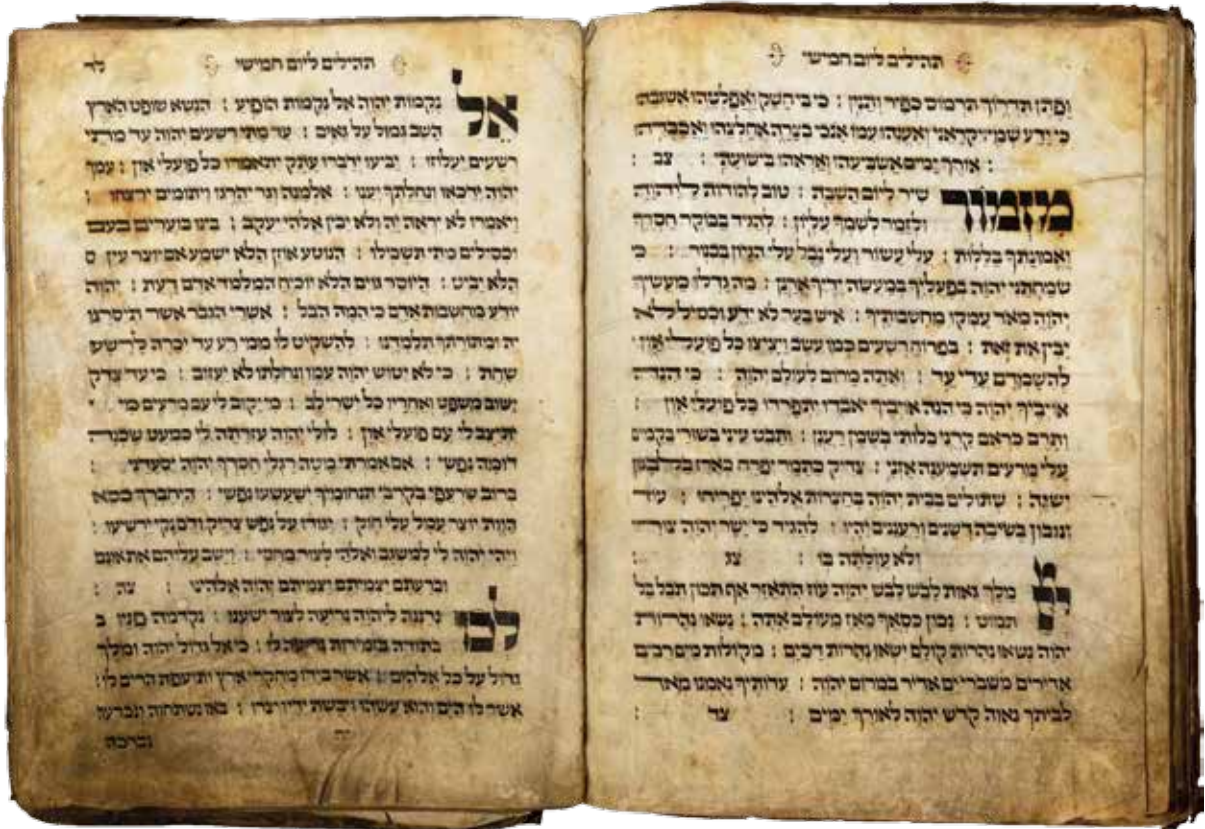 תהילים ליום חמישי
ופתן תדרוך תרמוס כפיר ותנין : כי בי חשק ואפלטהו אשגבהו
כי ידע שמי : יקראני ואענהו עמו אנכי בצרה אחלצהו ואכבדהו
: אורך ימים אשביעהו ואראהו בישועתי : צב :
מזמור שיר ליום השבת : טוב להודות ליהוה
ולזמר לשמך עליון : להגיד בבוקר חסדך
ואמונתך בלילות : עלי עשור ועלי נבל עלי הגיון בכנור : כי
שמחתני יהוה בפעליך במעשה ידיך ארנן : מה גדלו מעשיך
יהוה מאד עמקו מחשבותיך : איש בער לא ידע וכסיל לא
יבין את זאת : בפרוח רשעים כמו עשב ויציצו כל פועלי און
להשמדם עדי עד : ואתה מרום לעולם יהוה : כי הנה
אויביך יהוה כי הנה אויביך יאבדו יתפרדו כל פועלי און :
ותרם כראם קרני בלותי בשמן רענן : ותבט עיני בשורי בקמים
עלי מרעים תשמענה אזני : צדיק כתמר יפרח כארז בלבנון
ישגה : שתולים בבית יהוה בחצרות אלהינו יפריחו : עוד
ינובון בשיבה דשנים ורעננים יהיו : להגיד כי ישר יהוה צורי
ולא עולתה בו : צג :
יי מלך גאות לבש לבש יהוה עוז התאזר אף תכון תבל בל
תמוט : נכון כסאך מאז מעולם אתה : נשאו נהרות
יהוה נשאו נהרות קולם ישאו נהרות דכים : מקולות מים רבים
אדירים משברי ים אדיר במרום יהוה : עדותיך נאמנו מאד
לביתך נאוה קדש יהוה לאורך ימים : צד :
תהילים ליום חמישי לד
אל נקמות יהוה אל נקמות הופיע : הנשא שופט הארץ
השב גמול על גאים : עד מתי רשעים יהוה עד מתי
רשעים יעלוזו : יביעו ידברו עתק יתאמרו כל פועלי און : עמך
יהוה ידכאו ונחלתך יענו : אלמנה וגר יהרגו ויתומים ירצחו :
ויאמרו לא יראה יה ולא יבין אלהי יעקב : בינו בוערים בעם
וכסילים מתי תשכילו : הנוטע אוזן הלא ישמע אם יוצר עין
הלא יביט : היוסר גוים הלא יוכיח המלמד אדם דעת : יהוה
יודע מחשבות אדם כי המה הבל : אשרי הגבר אשר תיסרנו
יה ומתורתך תלמדנו : להשקיט לו מימי רע עד יכרה לרשע
שחת : כי לא יטוש יהוה עמו ונחלתו לא יעזוב : כי עד צדק
ישוב משפט ואחריו כל ישרי לב : מי יקום לי עם מרעים מי
יתיצב לי עם פועלי און : לולי יהוה עזרתה לי כמעט שכנה
דומה נפשי : אם אמרתי מטה רגלי חסדך יהוה יסעדני :
ברוב שרעפי בקרבי תנחומיך ישעשעו נפשי : היחברך כסא
הוות יוצר עמל עלי חוק : יגודו על נפש צדיק ודם נקי ירשיעו :
ויהי יהוה לי למשגב ואלהי לצור מחסי : וישב עליהם את אונם
וברעתם יצמיתם יצמיתם יהוה אלהינו : צה :
לכו נרננה ליהוה נריעה לצור ישענו : נקדמה פניו
בתודה בזמירות נריעה לו : כי אל גדול יהוה ומלך
גדול על כל אלהים : אשר בידו מחקרי ארץ ותועפת הרים לו :
אשר לו הים והוא עשהו ויבשת ידיו יצרו : באו נשתחוה ונכרעה
נברכה